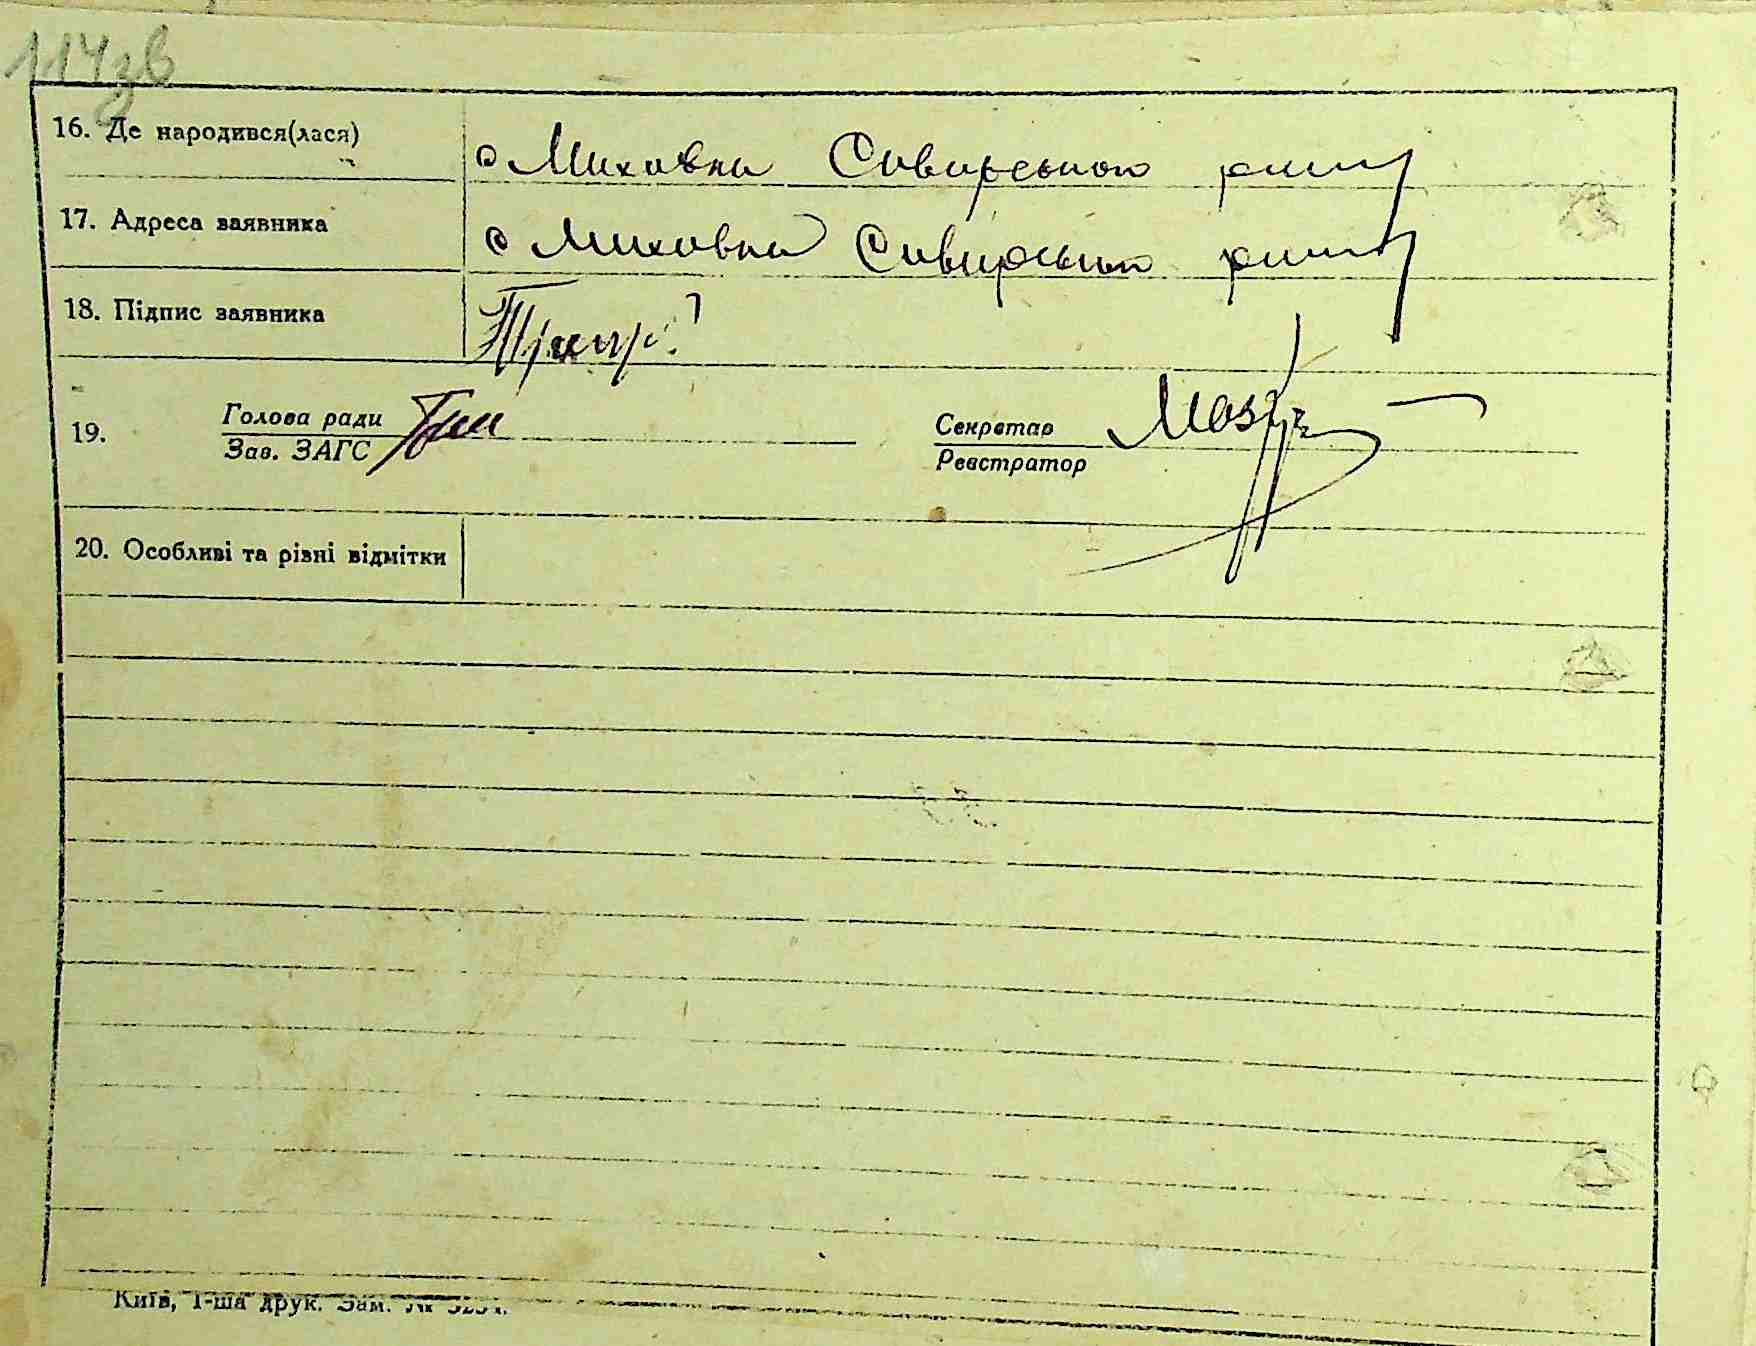 114зв
16. Де народився(лася)
с Миховка Сивирського
17. Адреса заявника
с Миховка Сивирського
18. Підпис заявника
19. Голова ради
Зав. ЗАГС
Секретар
Реєстратор
20. Особливі та різні відмітки
Київ, 1-ша друк. Зам. №